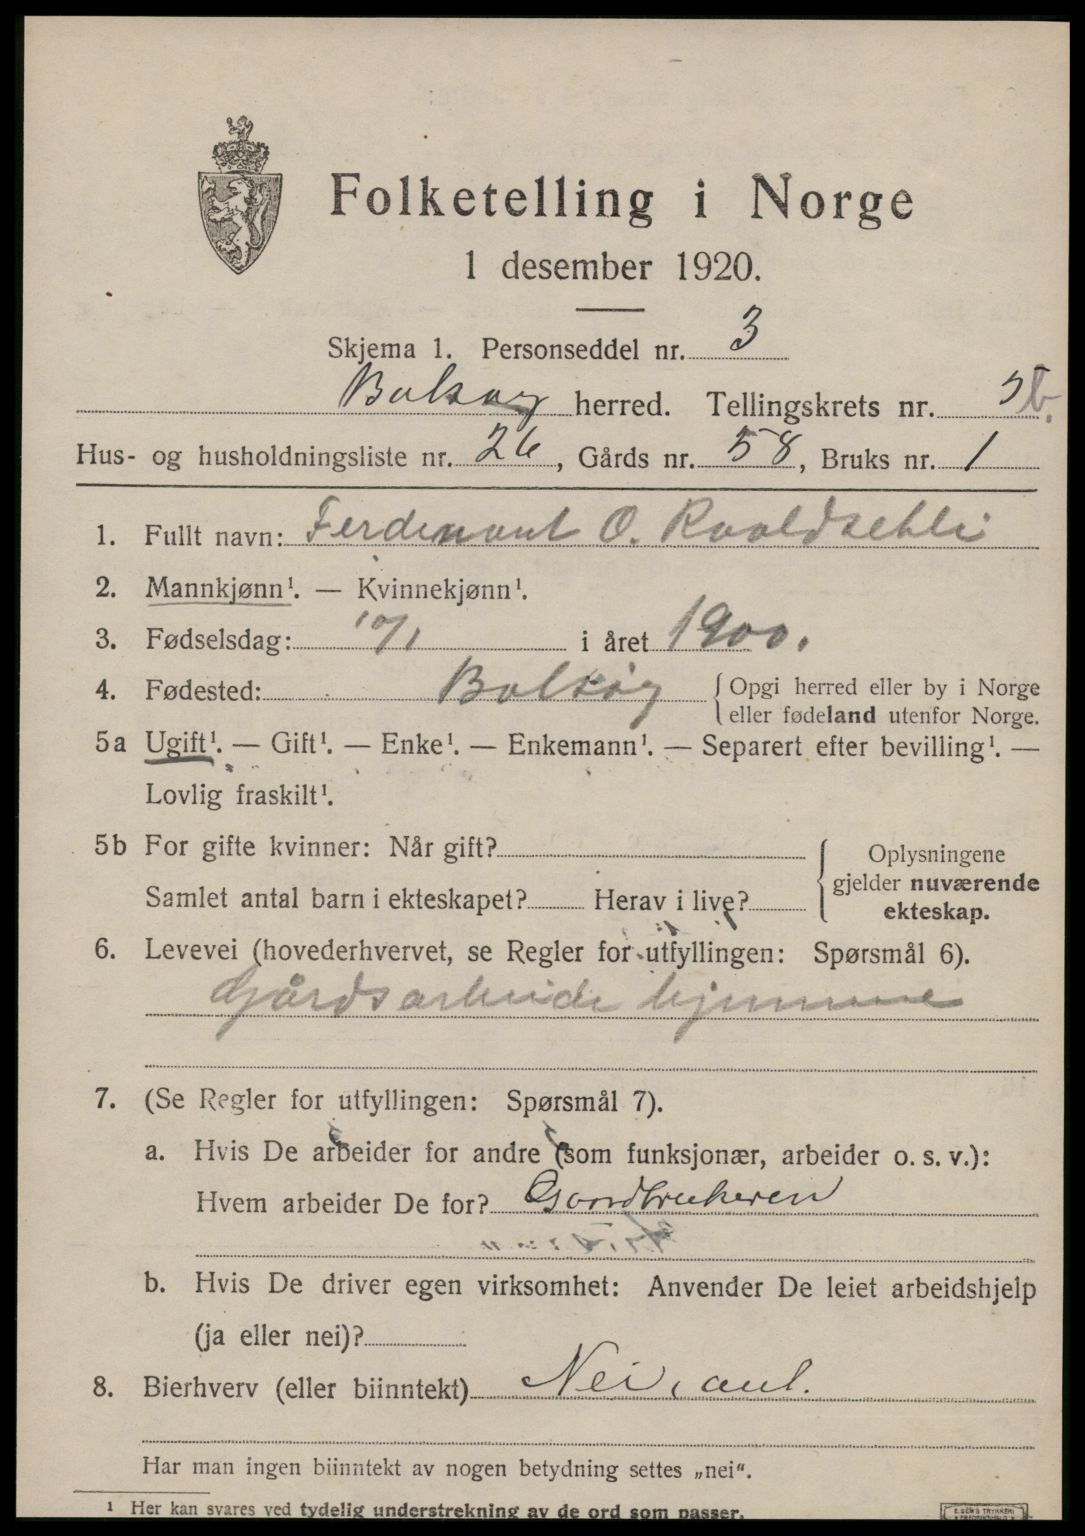 Folketelling i Norge
1 desember 1920.
Skjema 1. Personseddel nr. 3
Bolsøy herred. Tellingskrets nr. 5b.
Hus- og husholdningsliste nr. 26, Gårds nr. 58, Bruks nr. 1
1. Fullt navn: Ferdinant O. Roaldsethli
2. Mannkjønn¹. — Kvinnekjønn¹.
3. Fødselsdag: 10/1 i året 1900.
4. Fødested: Bolsøy { Opgi herred eller by i Norge
eller fødeland utenfor Norge.
5a Ugift¹. — Gift¹. — Enke¹. — Enkemann¹. — Separert efter bevilling¹. —
Lovlig fraskilt¹.
5b For gifte kvinner: Når gift? { Oplysningene
gjelder nuværende
ekteskap.
Samlet antal barn i ekteskapet? Herav i live?
6. Levevei (hovederhvervet, se Regler for utfyllingen: Spørsmål 6).
Gårdsarbeide hjemme
7. (Se Regler for utfyllingen: Spørsmål 7).
a. Hvis De arbeider for andre (som funksjonær, arbeider o. s. v.):
Hvem arbeider De for? Gaardbrukeren
b. Hvis De driver egen virksomhet: Anvender De leiet arbeidshjelp
(ja eller nei)?
8. Bierhverv (eller biinntekt) Nei,
Har man ingen biinntekt av nogen betydning settes „nei“.
¹ Her kan svares ved tydelig understrekning av de ord som passer.